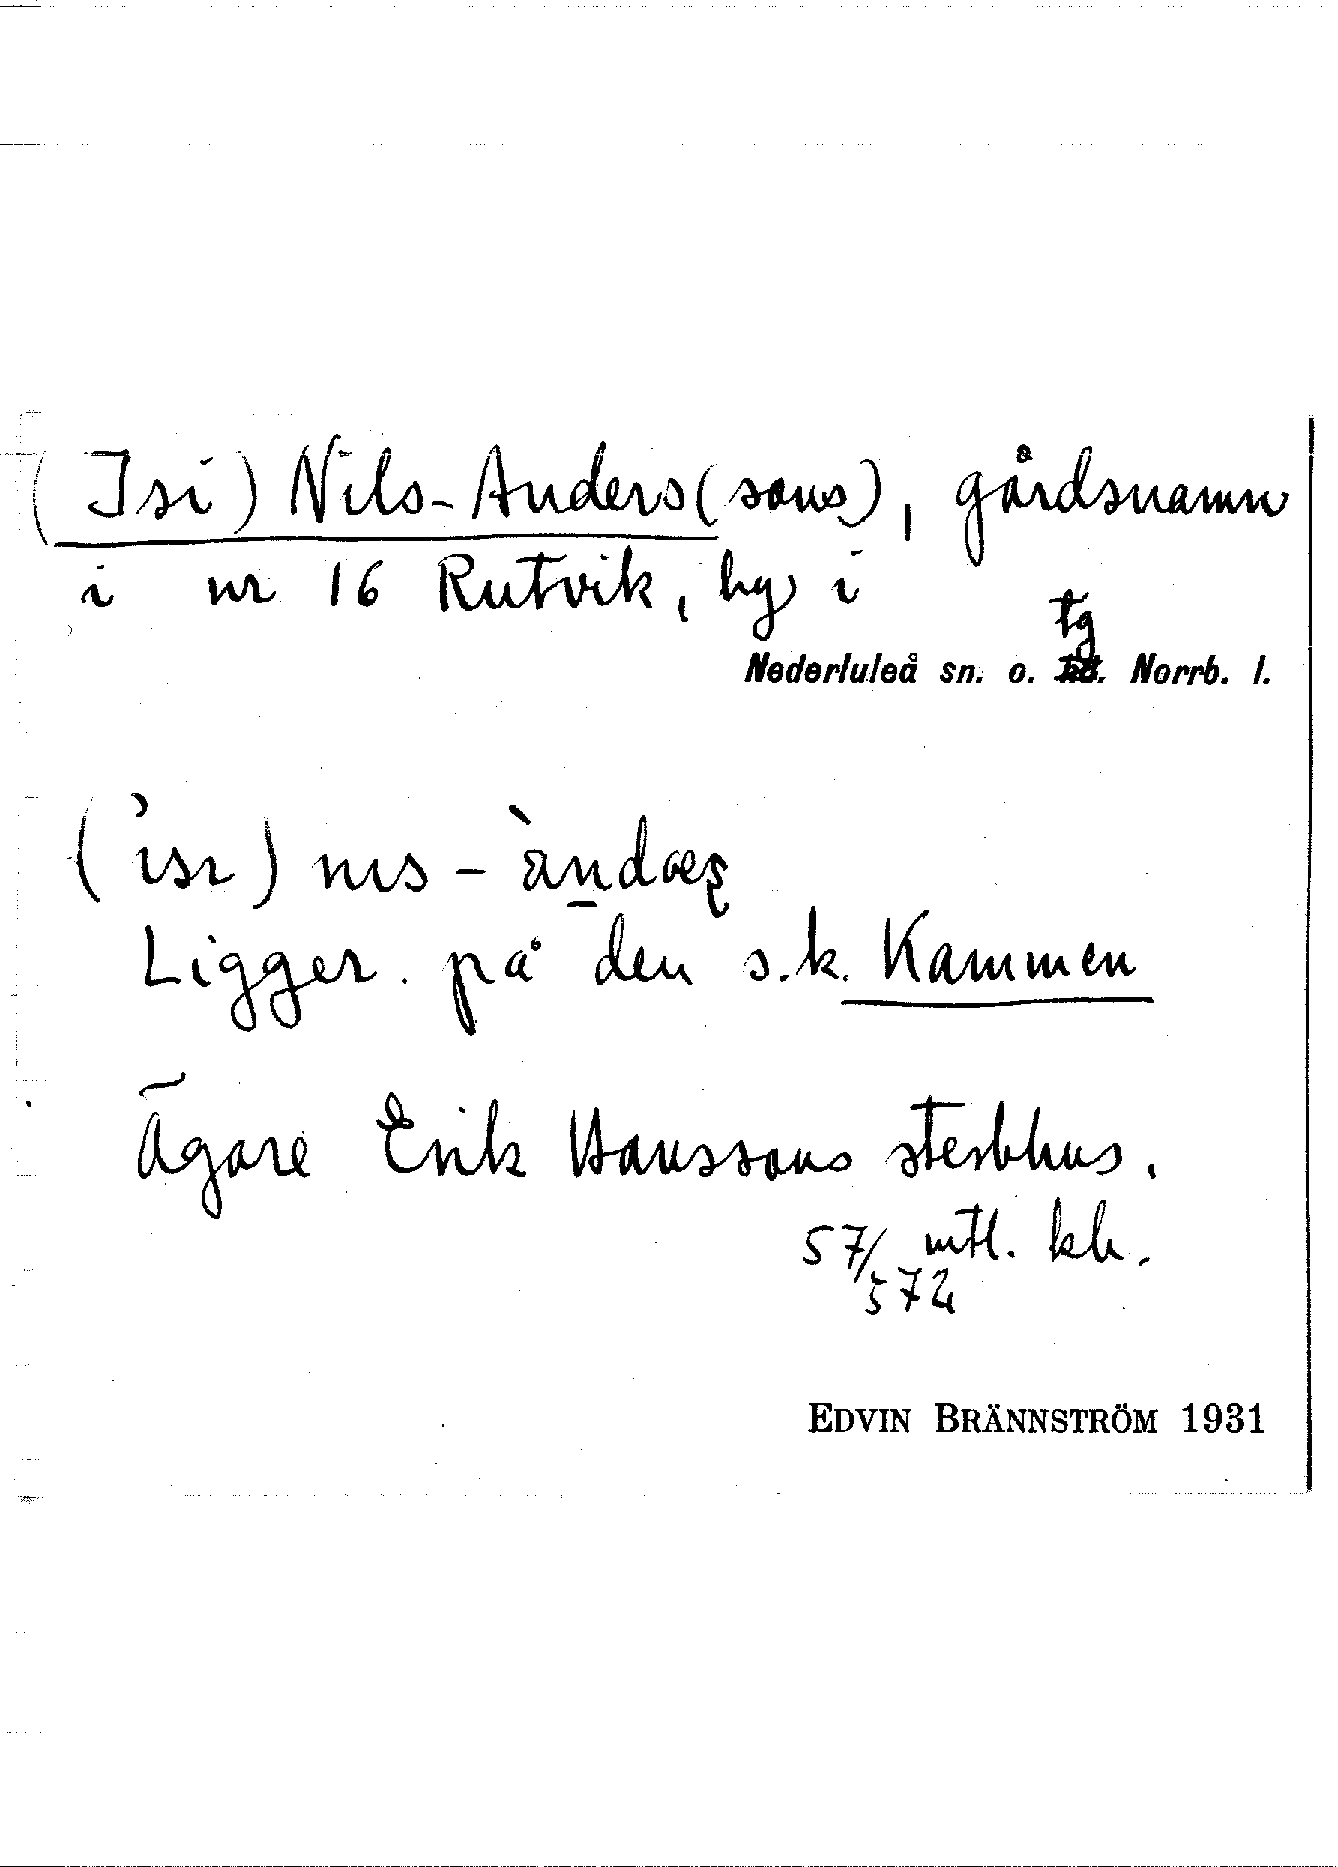 (Isi) Nils-Anders(sons), gårdsnamn
i nr 16 Rutvik, by i
tg
Nederluleå sn. o. Norrb. l.
Ligger på den s.k. Kammen
Ägare Erik Hanssons sterbhus.
57/572 mtl. kh.
EDVIN BRÄNNSTRÖM 1931